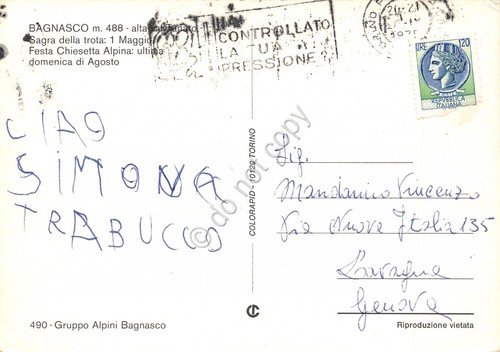 BAGNASCO m. 488 - alta
Sagra della trota: 1 Maggio
Festa Chiesetta Alpina: ultima
domenica di Agosto
CONTROLLATO
LA TUA
PRESSIONE?
LIRE 120
REPUBBLICA
ITALIANA
CIAO
SIMONA
TRABUCCO
COLORAPID - 10122 TORINO
do not copy
Sig.
Mandarino Vincenzo
Via Nuova Italia 135
Lavagna
Genova
490 - Gruppo Alpini Bagnasco
Riproduzione vietata